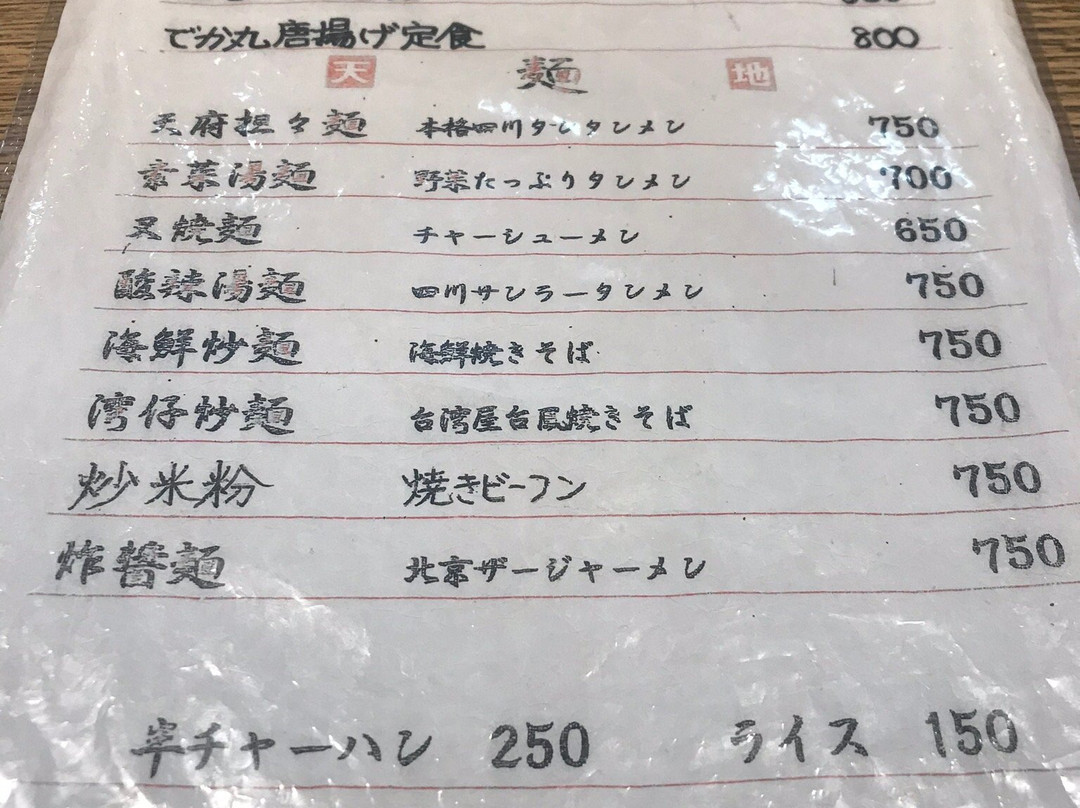 でか丸唐揚げ定食 800
天 麺 地
天府担々麺 本格四川タンタンメン 750
素菜湯麺 野菜たっぷりタンメン 700
叉焼麺 チャーシューメン 650
酸辣湯麺 四川サンラータンメン 750
海鮮炒麺 海鮮焼きそば 750
湾仔炒麺 台湾屋台風焼きそば 750
炒米粉 焼きビーフン 750
炸醤麺 北京ザージャーメン 750
半チャーハン 250 ライス 150